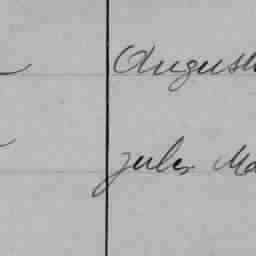 August
Jules Ma